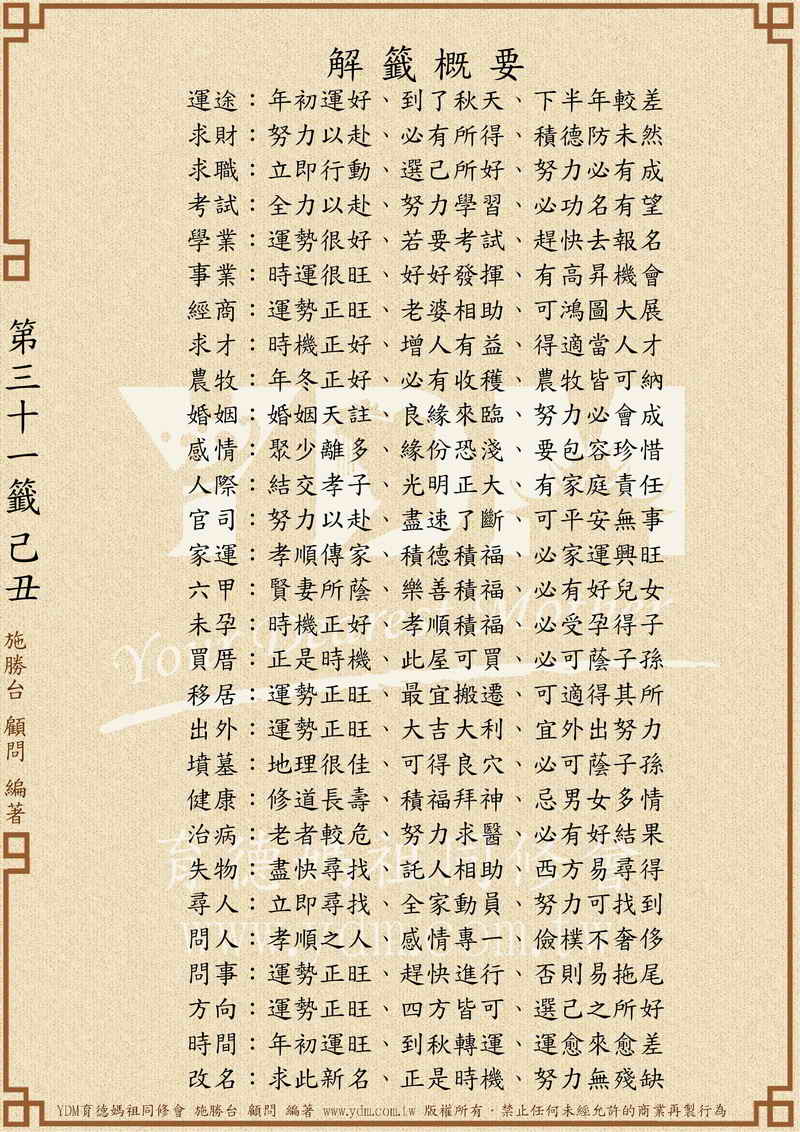 解籤概要
運途：年初運好、到了秋天、下半年較差
求財：努力以赴、必有所得、積德防未然
求職：立即行動、選己所好、努力必有成
考試：全力以赴、努力學習、必功名有望
學業：運勢很好、若要考試、趕快去報名
事業：時運很旺、好好發揮、有高昇機會
經商：運勢正旺、老婆相助、可鴻圖大展
求才：時機正好、增人有益、得適當人才
農牧：年冬正好、必有收穫、農牧皆可納
婚姻：婚姻天註、良緣來臨、努力必會成
感情：聚少離多、緣份恐淺、要包容珍惜
人際：結交孝子、光明正大、有家庭責任
官司：努力以赴、盡速了斷、可平安無事
家運：孝順傳家、積德積福、必家運興旺
六甲：賢妻所蔭、樂善積福、必有好兒女
未孕：時機正好、孝順積福、必受孕得子
買厝：正是時機、此屋可買、必可蔭子孫
移居：運勢正旺、最宜搬遷、可適得其所
出外：運勢正旺、大吉大利、宜外出努力
墳墓：地理很佳、可得良穴、必可蔭子孫
健康：修道長壽、積福拜神、忌男女多情
治病：老者較危、努力求醫、必有好結果
失物：盡快尋找、託人相助、西方易尋得
尋人：立即尋找、全家動員、努力可找到
問人：孝順之人、感情專一、儉樸不奢侈
問事：運勢正旺、趕快進行、否則易拖尾
方向：運勢正旺、四方皆可、選己之所好
時間：年初運旺、到秋轉運、運愈來愈差
改名：求此新名、正是時機、努力無殘缺
第三十一籤己丑
施勝台 顧問 編著
YDM
Your Dearest Mother
育德媽祖同修會
www.ydm.com.tw
YDM育德媽祖同修會 施勝台 顧問 編著 www.ydm.com.tw 版權所有．禁止任何未經允許的商業再製行為